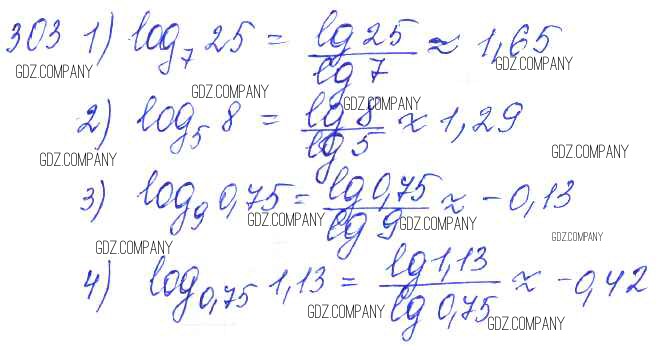 303 1) log₇ 25 = lg 25 / lg 7 ≈ 1,65
GDZ.COMPANY GDZ.COMPANY GDZ.COMPANY
2) log₅ 8 = lg 8 / lg 5 ≈ 1,29
GDZ.COMPANY GDZ.COMPANY GDZ.COMPANY
3) log₉ 0,75 = lg 0,75 / lg 9 ≈ -0,13
GDZ.COMPANY GDZ.COMPANY GDZ.COMPANY GDZ.COMPANY
4) log₀,₇₅ 1,13 = lg 1,13 / lg 0,75 ≈ -0,42
GDZ.COMPANY GDZ.COMPANY